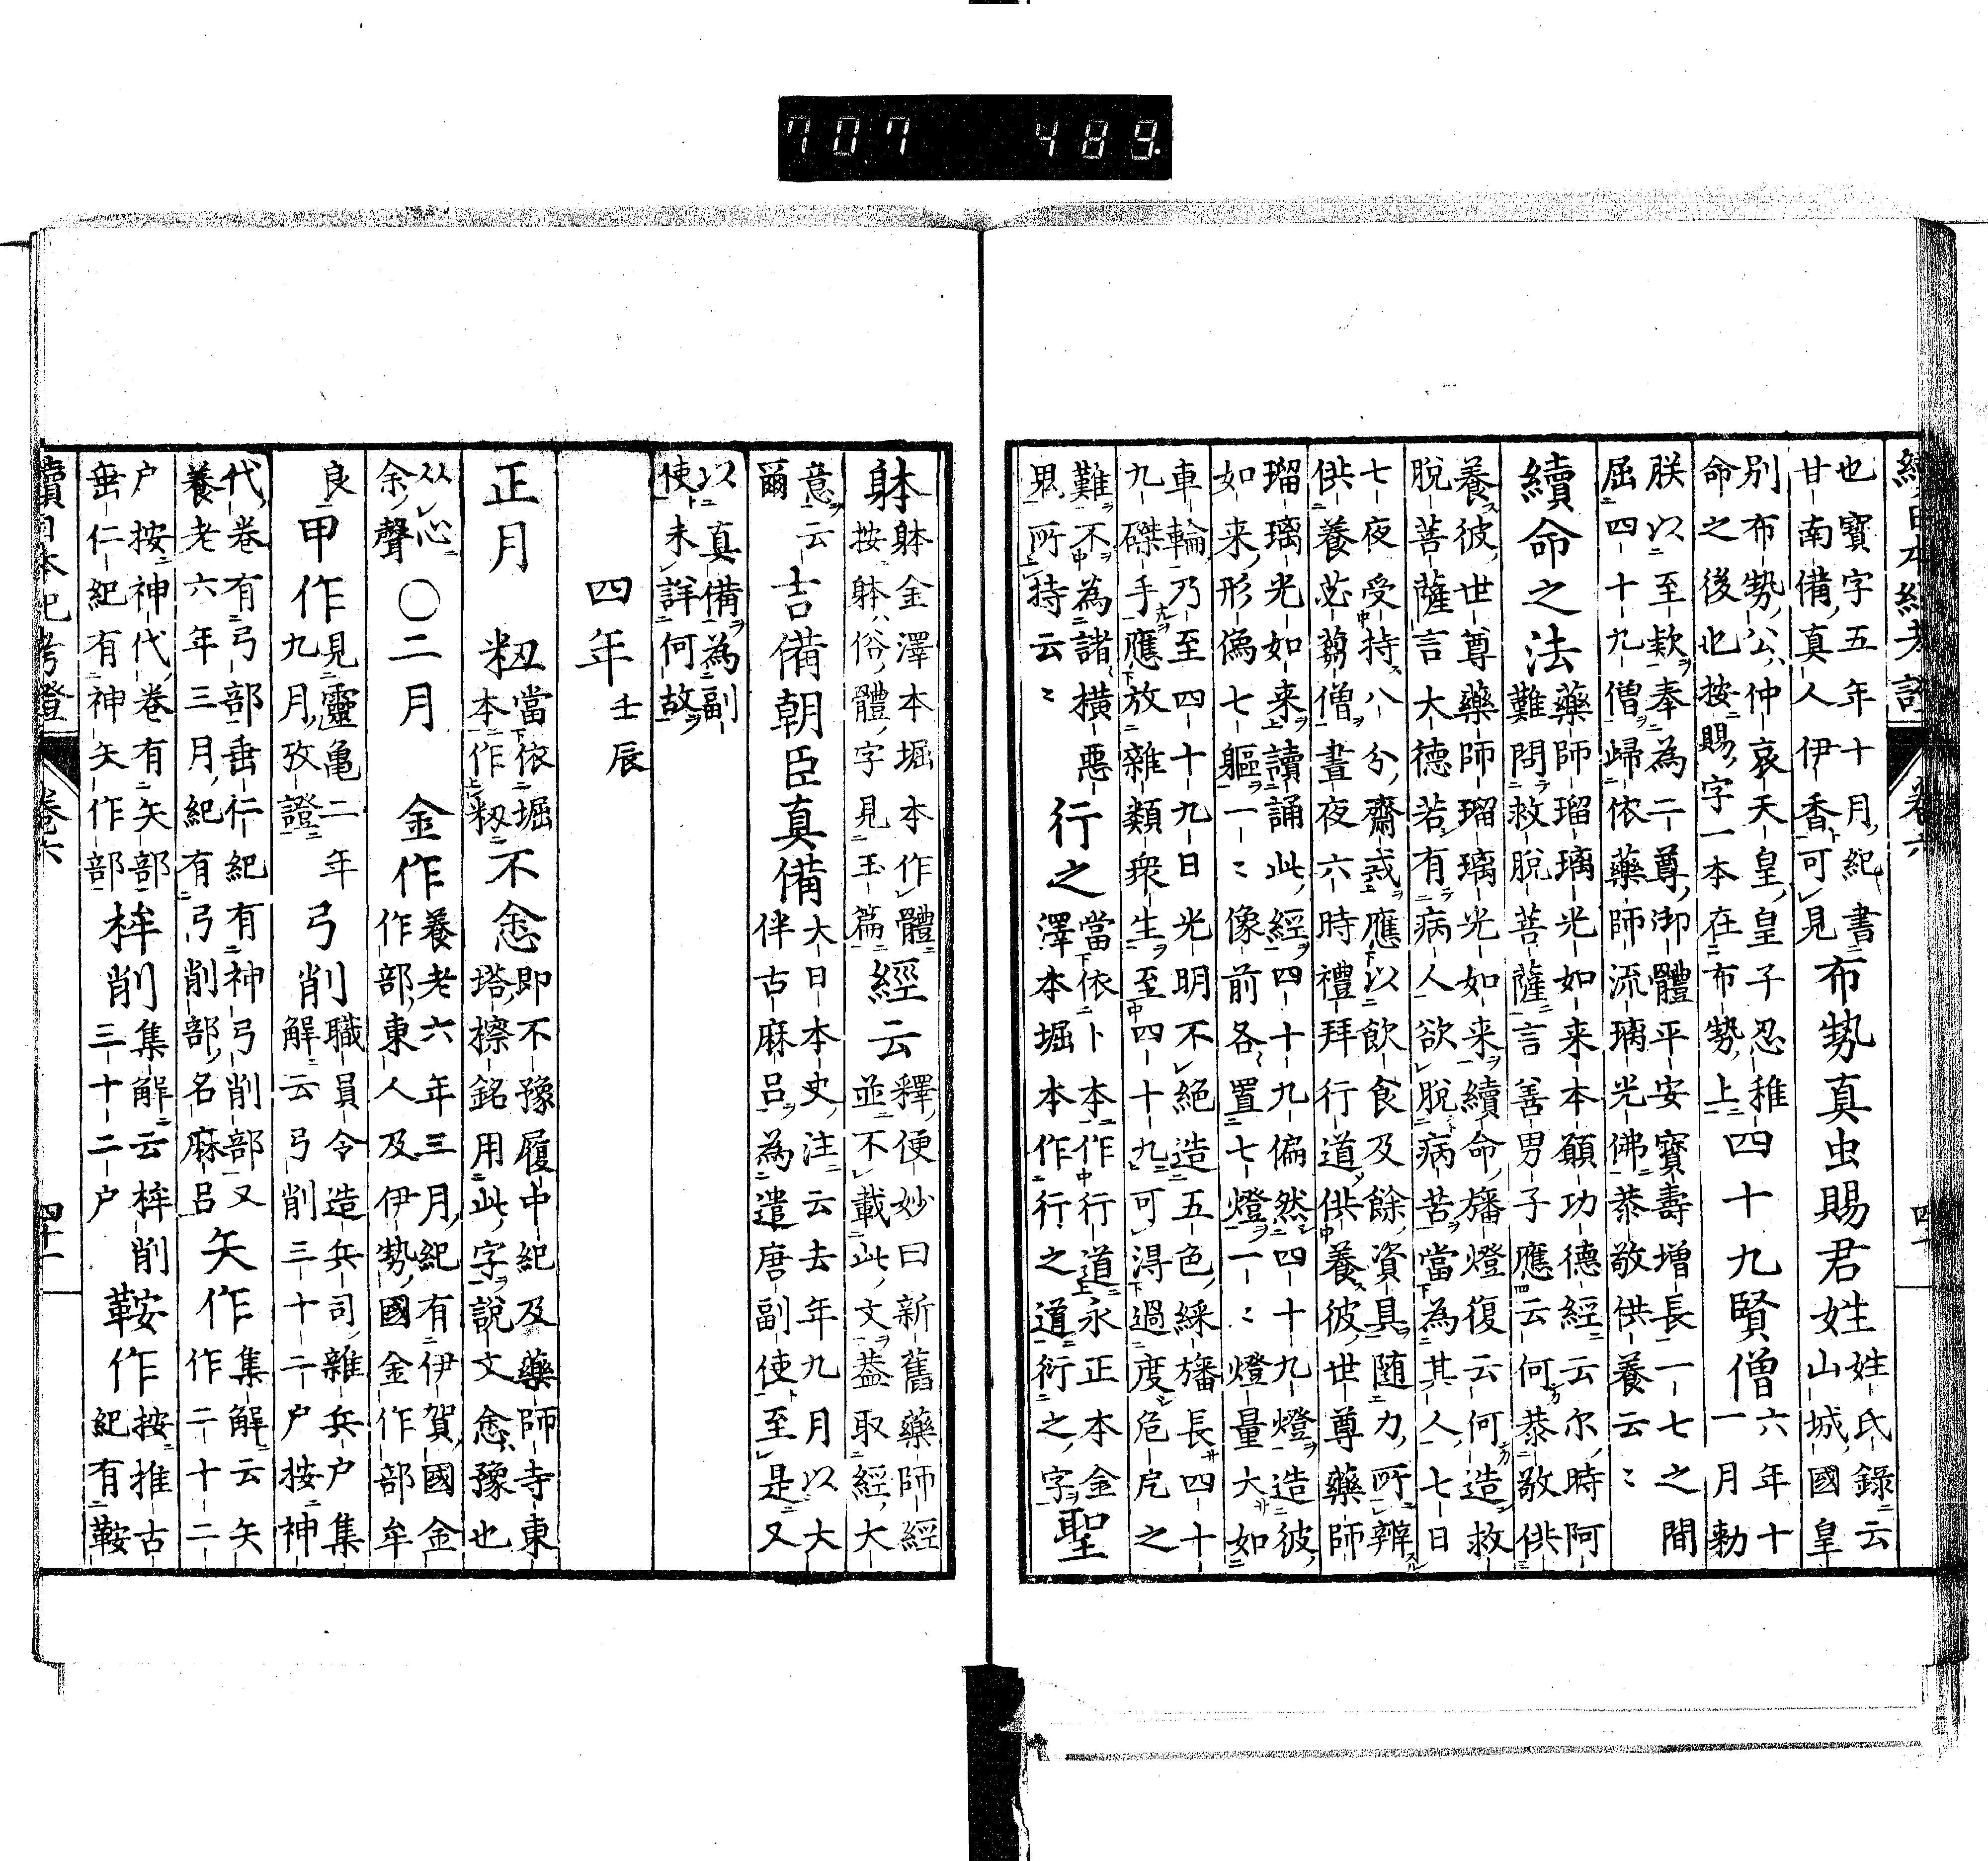 707 489
續日本紀考證 卷六 四十
也寶字五年十月紀書
甘南備真人伊香可見
布勢真虫賜君姓
姓氏錄云
山城國皇
別布勢公仲哀天皇皇子忍稚
命之後也按賜字一本在布勢上
四十九賢僧
六年十
一月勅
朕以至款奉為二尊御體平安寶壽增長一七之間
屈四十九僧歸依藥師流璃光佛恭敬供養云〻
續命之法
藥師瑠璃光如来本願功德經云尔時阿
難問救脫菩薩言善男子應云何恭敬供
養彼世尊藥師瑠璃光如来續命旛燈復云何造救
脫菩薩言大德若有病人欲脫病苦當為其人七日
七夜受持八分齋戒應以飲食及餘資具隨力所辨
供養苾芻僧晝夜六時禮拜行道供養彼世尊藥師
瑠璃光如来讀誦此經四十九徧然四十九燈造彼
如来形像七軀一〻像前各置七燈一〻燈量大如
車輪乃至四十九日光明不絕造五色綵旛長四十
九磔手應放雜類衆生至四十九可得過度危厄之
難不為諸橫惡
鬼所持云〻
行之
當依卜本作行道永正本金
澤本堀本作行之道衍之字
聖
躰
躰金澤本堀本作體
按躰俗體字見玉篇
經云
釋便妙曰新舊藥師經
並不載此文葢取經大
意云
爾
吉備朝臣真備
大日本史注云去年九月以大
伴古麻呂為遣唐副使至是又
以真備為副
使未詳何故
四年 壬辰
正月
籾
當依堀
本作籾
不悆
即不豫履中紀及藥師寺東
塔檫銘用此字說文悆豫也
从心
余聲
〇二月
金作
養老六年三月紀有伊賀國金
作部東人及伊勢國金作部牟
良
甲作
見靈亀二年
九月攷證
弓削
職員令造兵司雜兵户集
解云弓削三十二户按神
代卷有弓部垂仁紀有神弓削部又
養老六年三月紀有弓削部名麻呂
矢作
集解云矢
作二十二
户按神代卷有矢部
垂仁紀有神矢作部
桙削
集解云桙削
三十二户
鞍作
按推古
紀有鞍
續日本紀考證 卷六 四十一